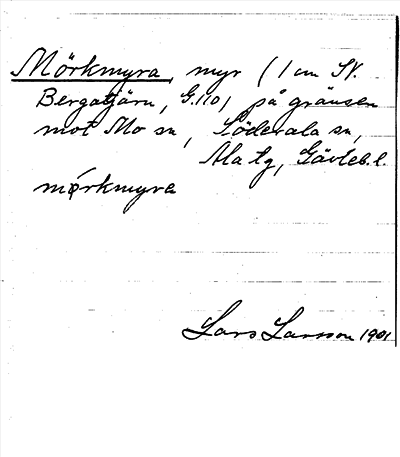 Mörkmyra, myr (1 cm SV.
Bergatjärn, G.110) på gränsen
mot Mo sn, Söderala sn,
Ala tg, Gävleb.l.
mörkmyra
Lars Larsson 1901